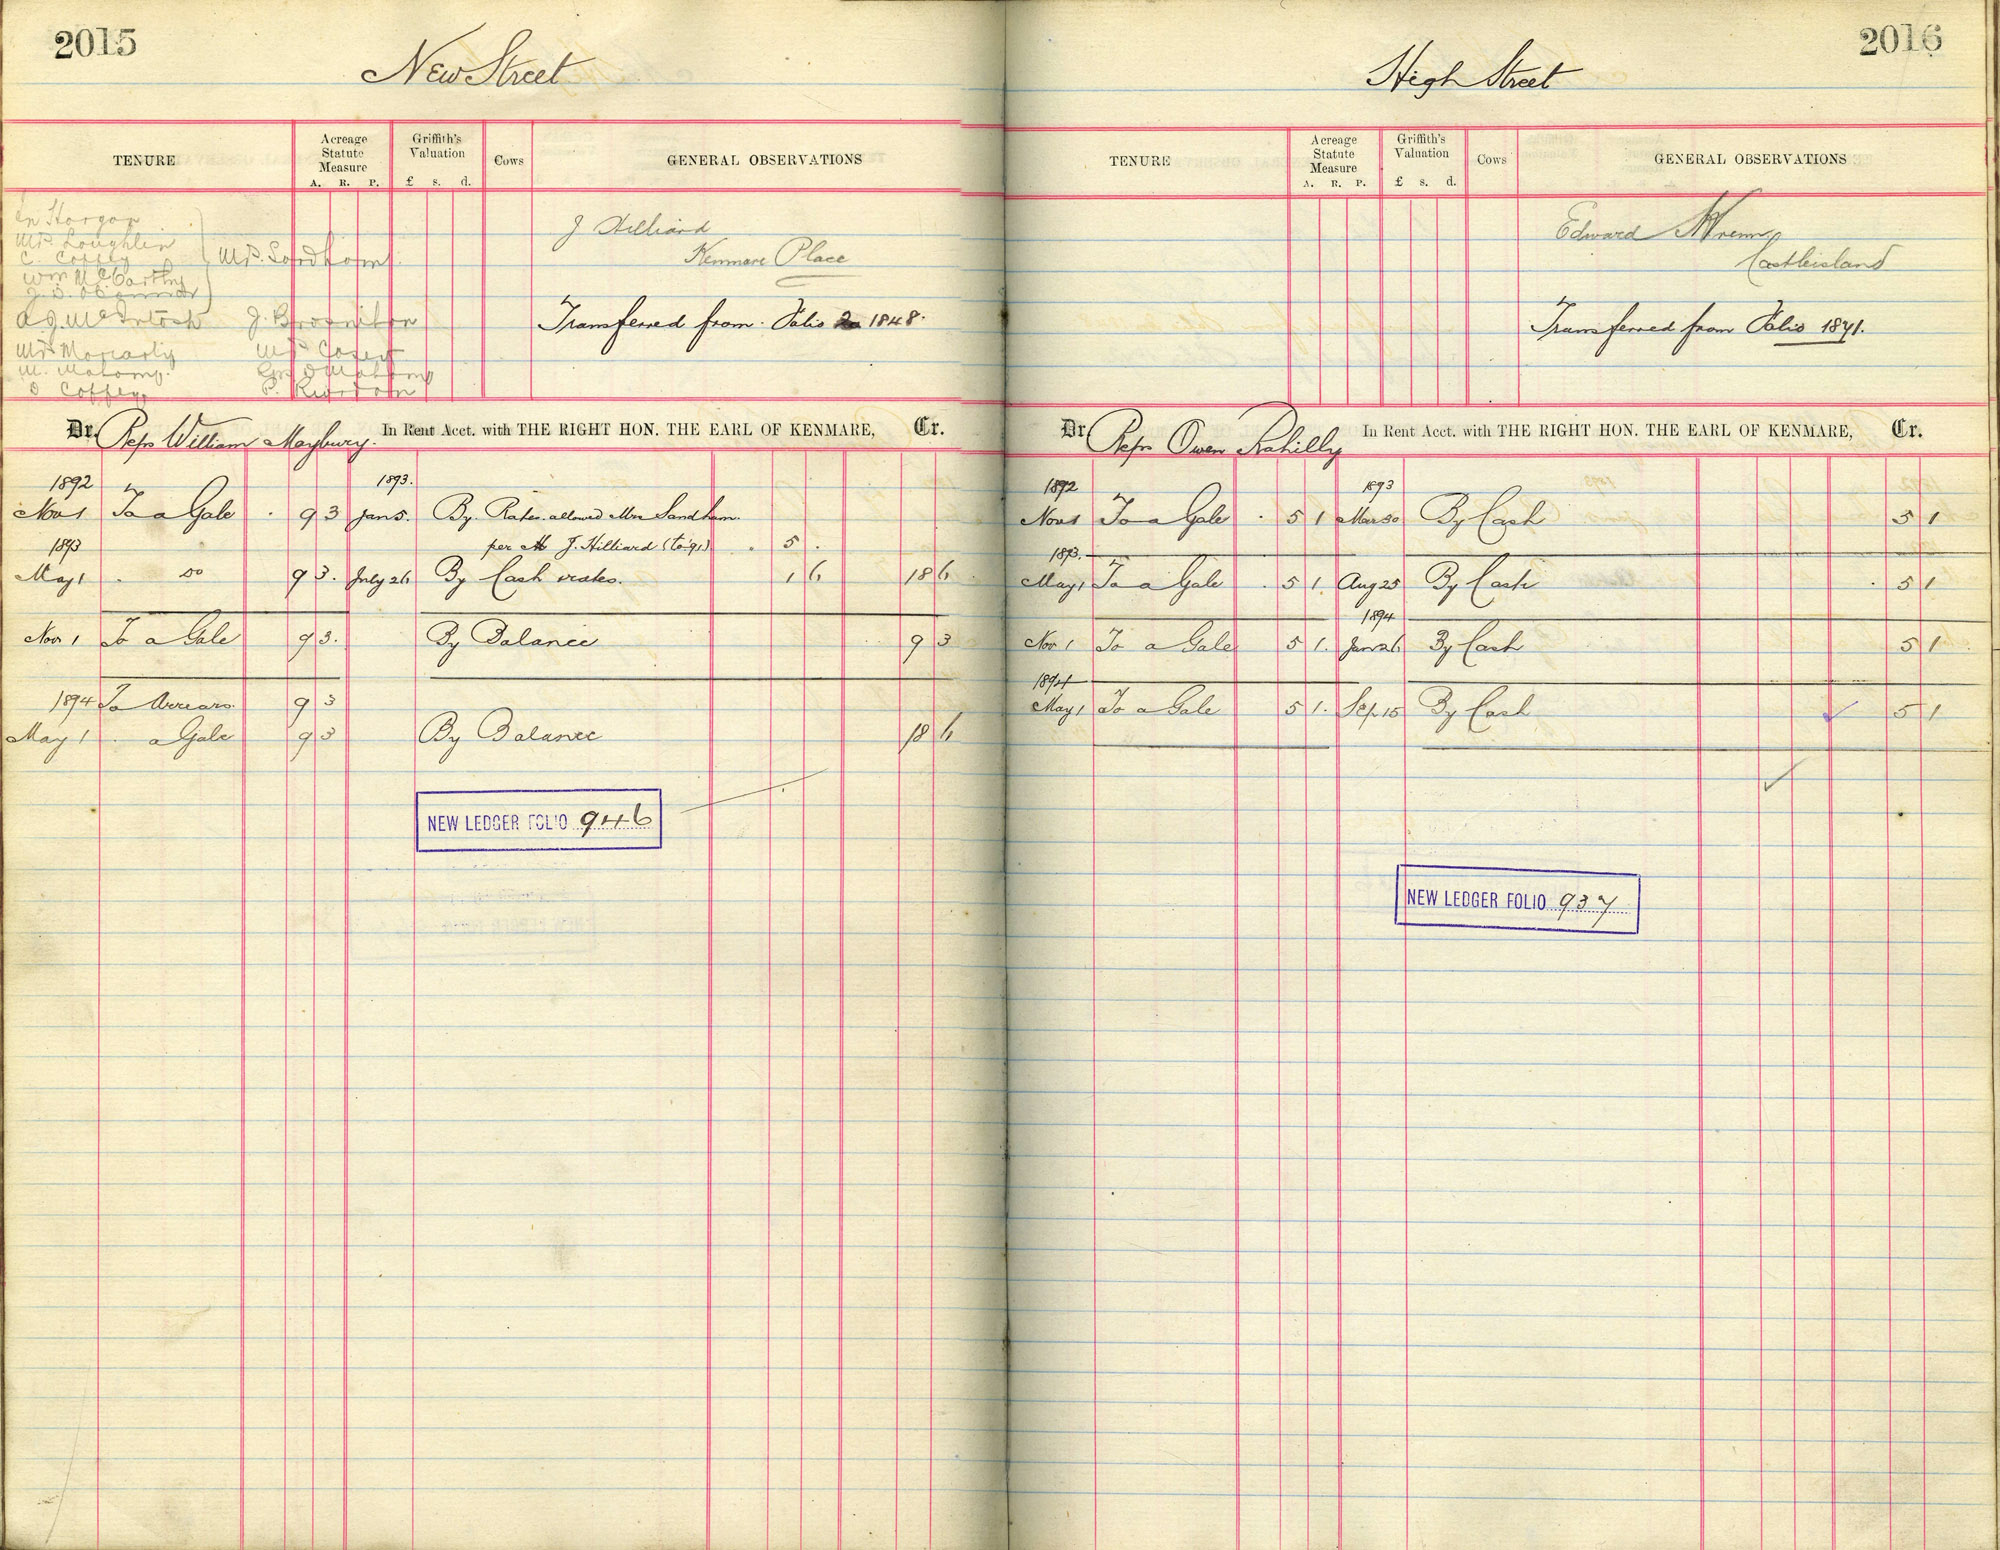 2015
New Street
TENURE
Acreage Statute Measure
A. R. P.
Griffith's Valuation
£ s. d.
Cows
GENERAL OBSERVATIONS
Horgan
Mrs. Loughlin
C. Coffey
Mrs. Sandham
Wm McCarthy
J. Hilliard
Kenmare Place
A. J. McIntosh J. Brosnihan
Transferred from Folio 1848.
Mrs Moriarty Mrs Casey
M. Mahony
D Coffey P. Riordan
Dr. Reps William Maybury. In Rent Acct. with THE RIGHT HON. THE EARL OF KENMARE, Cr.
1892 1893.
Nov 1 To a Gale . 9 3 Jan 5. By Rates allowed Mrs Sandham
1893 per J. Hilliard (to '91) . 5 .
May 1 . Do 9 3. July 26 By Cash rates. 1 6 18 6
Nov 1 To a Gale 9 3. By Balance 9 3
1894 To Arrears. 9 3
May 1 . a Gale 9 3 By Balance 18 6
NEW LEDGER FOLIO 946
2016
High Street
TENURE
Acreage Statute Measure
A. R. P.
Griffith's Valuation
£ s. d.
Cows
GENERAL OBSERVATIONS
Edward Wrenn
Castleisland
Transferred from Folio 1871.
Dr Reps Owen Rahilly In Rent Acct. with THE RIGHT HON. THE EARL OF KENMARE, Cr.
1892 1893
Nov 1 To a Gale . 5 1 Mar 30 By Cash 5 1
1893.
May 1 To a Gale . 5 1 Aug 25 By Cash . 5 1
1894
Nov 1 To a Gale 5 1. Jan 26 By Cash 5 1
1894
May 1 To a Gale 5 1. Sep. 15 By Cash 5 1
NEW LEDGER FOLIO 937